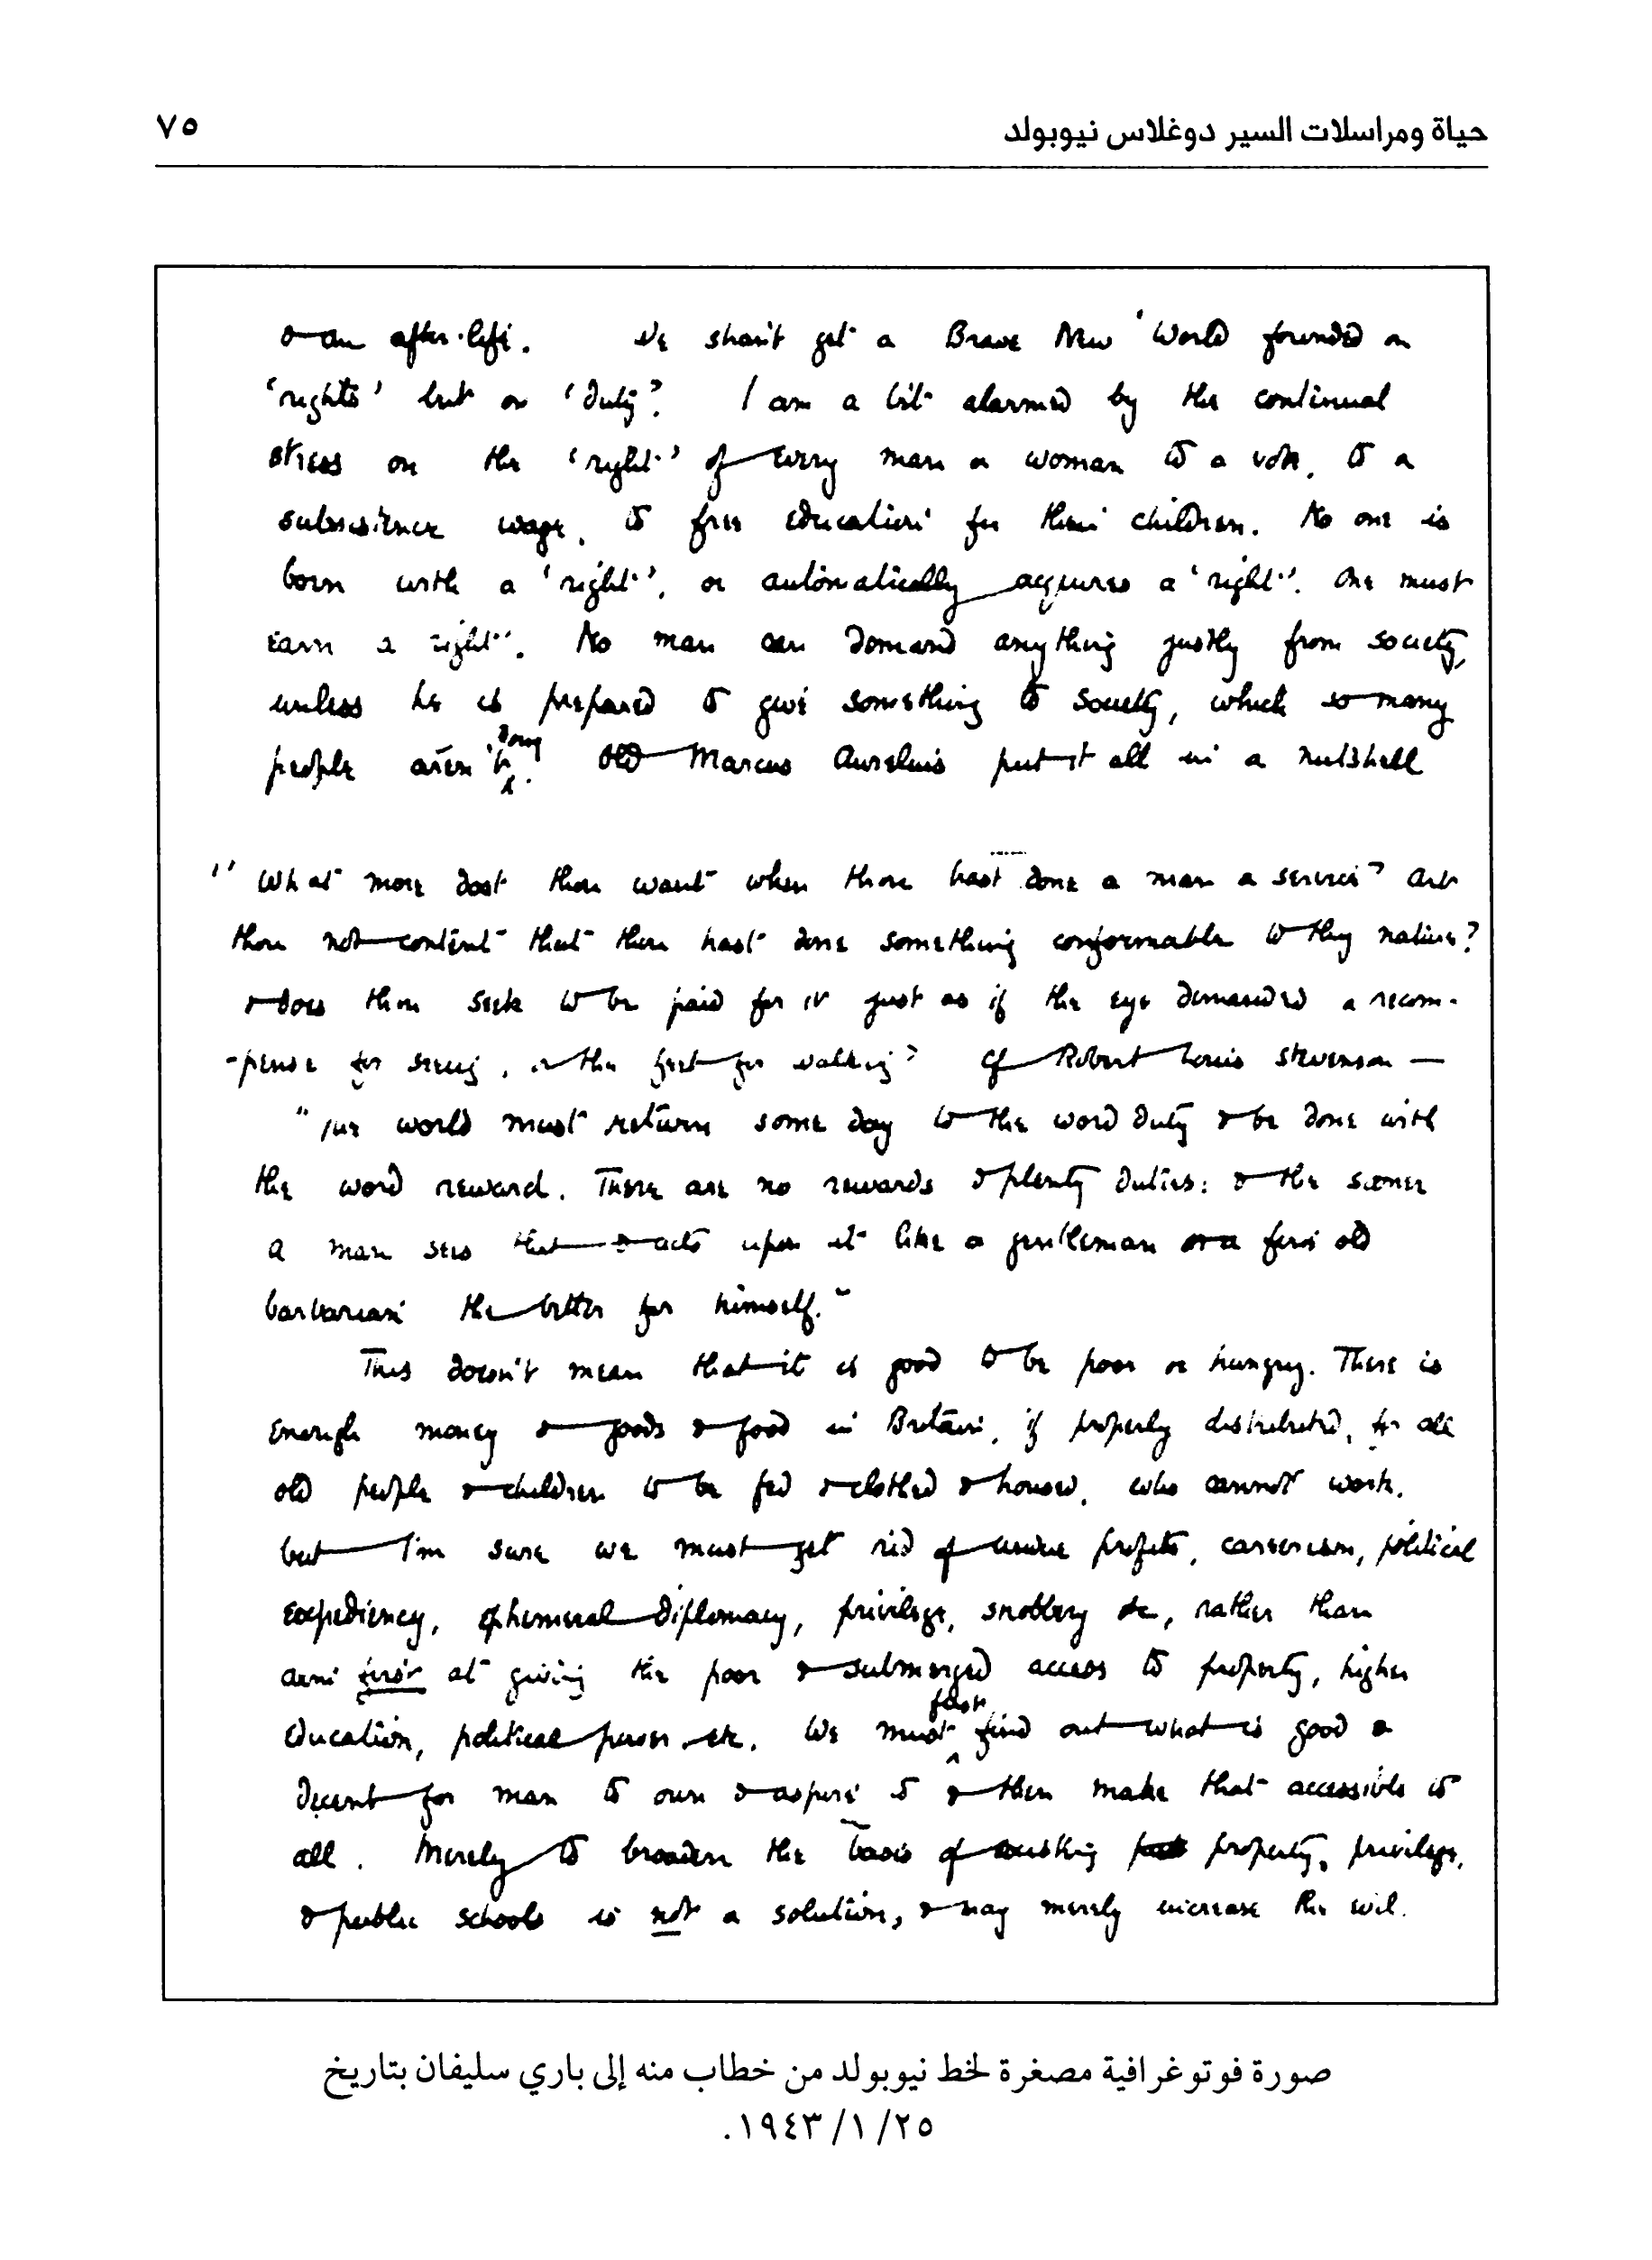 حياة ومراسلات السير دوغلاس نيوبولد
٧٥
& an after-life. We shan't get a Brave New World founded on
'rights' but on 'duty'. I am a bit alarmed by the continual
stress on the 'right' of every man or woman to a vote, to a
subsistence wage, to free education for their children. No one is
born with a 'right', or automatically acquires a 'right'. One must
earn a 'right'. No man can demand anything justly from society,
unless he is prepared to give something to society, which so many
people aren't doing. Old Marcus Aurelius put it all in a nutshell
"What more dost thou want when thou hast done a man a service? Art
thou not content that thou hast done something conformable to thy nature?
& does thou seek to be paid for it just as if the eye demanded a recom-
-pense for seeing, or the feet for walking? Cf Robert Louis Stevenson —
"The world must return some day to the word duty & be done with
the word reward. There are no rewards & plenty duties: & the sooner
a man sees that & acts upon it like a gentleman or a fine old
barbarian the better for himself."
This doesn't mean that it is good to be poor or hungry. There is
enough money & goods & food in Britain, if properly distributed, for all
old people & children to be fed & clothed & housed, who cannot work.
but I'm sure we must get rid of undue profits, careerism, political
expediency, ephemeral diplomacy, privilege, snobbery etc, rather than
aim first at giving the poor & submerged access to property, higher
education, political power etc. We must first find out what is good &
decent for man to own & aspire to & then make that accessible to
all. Merely to broaden the basis of property, privilege,
& public schools is not a solution, & may merely increase the evil.
صورة فوتوغرافية مصغرة لخط نيوبولد من خطاب منه إلى باري سليفان بتاريخ
٢٥/ ١/ ١٩٤٣.